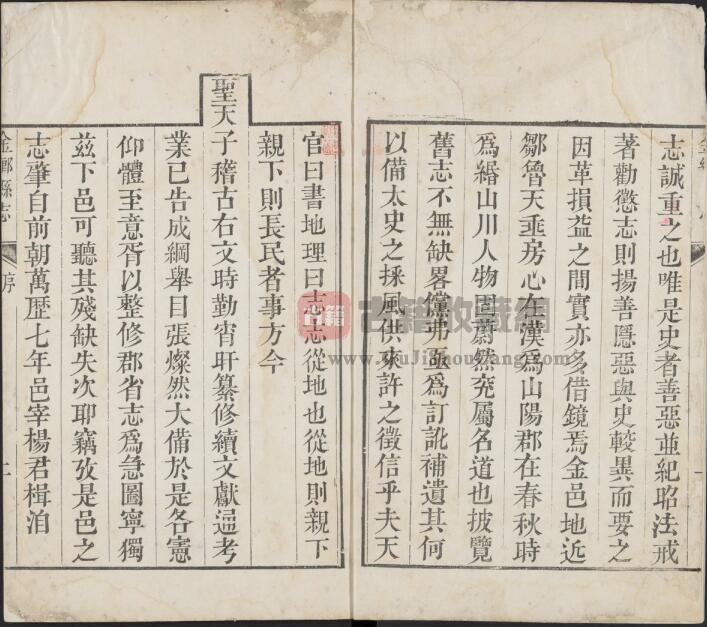 志誠重之也唯是史者善惡並紀昭法戒
著勸懲志則揚善隱惡與史較異而要之
因革損益之間實亦多借鏡焉金邑地近
鄒魯天垂房心在漢爲山陽郡在春秋時
爲緡山川人物固蔚然兖屬名道也披覽
舊志不無缺畧儻弗亟爲訂訛補遺其何
以備太史之採風供來許之徵信乎夫天
官曰書地理曰志志從地也從地則親下
親下則長民者事方今
聖天子稽古右文時勤宵旰纂修續文獻通考
業已告成綱舉目張燦然大備於是各憲
仰體至意胥以整修郡省志爲急圖寧獨
茲下邑可聽其殘缺失次聊竊攷是邑之
志肇自前朝萬歷七年邑宰楊君楫洎
金鄉縣志
序
二
古籍收藏網
www.GuJiShouCang.com